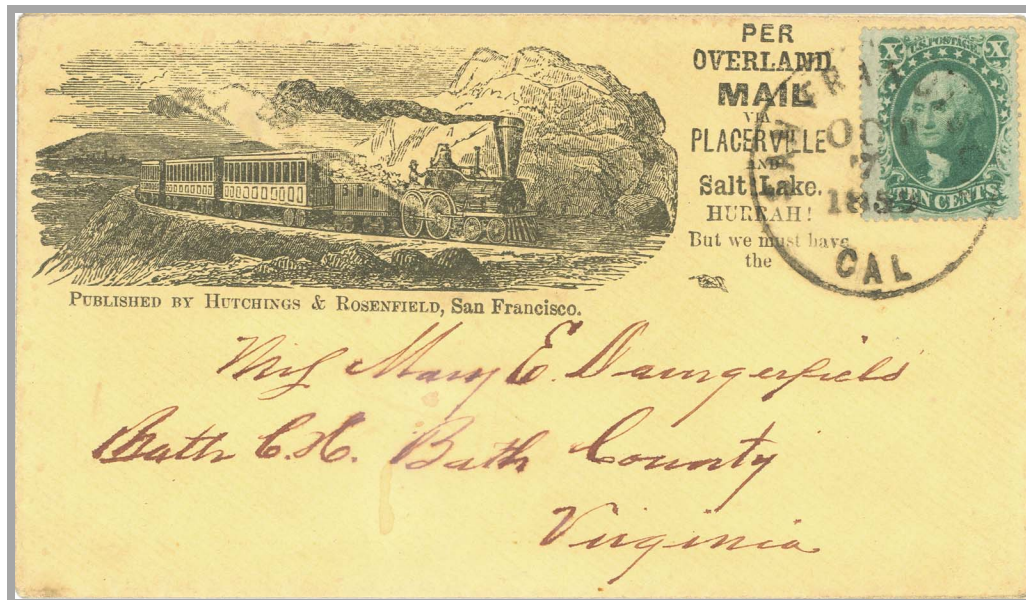 PER
OVERLAND
MAIL
VIA
PLACERVILLE
AND
Salt Lake.
HURRAH!
But we must have
the
U.S. POSTAGE
X X
TEN CENTS
SAN FRAN
OCT
7
CAL
PUBLISHED BY HUTCHINGS & ROSENFIELD, San Francisco.
Miss Mary E. Daingerfield
Bath C.H. Bath County
Virginia